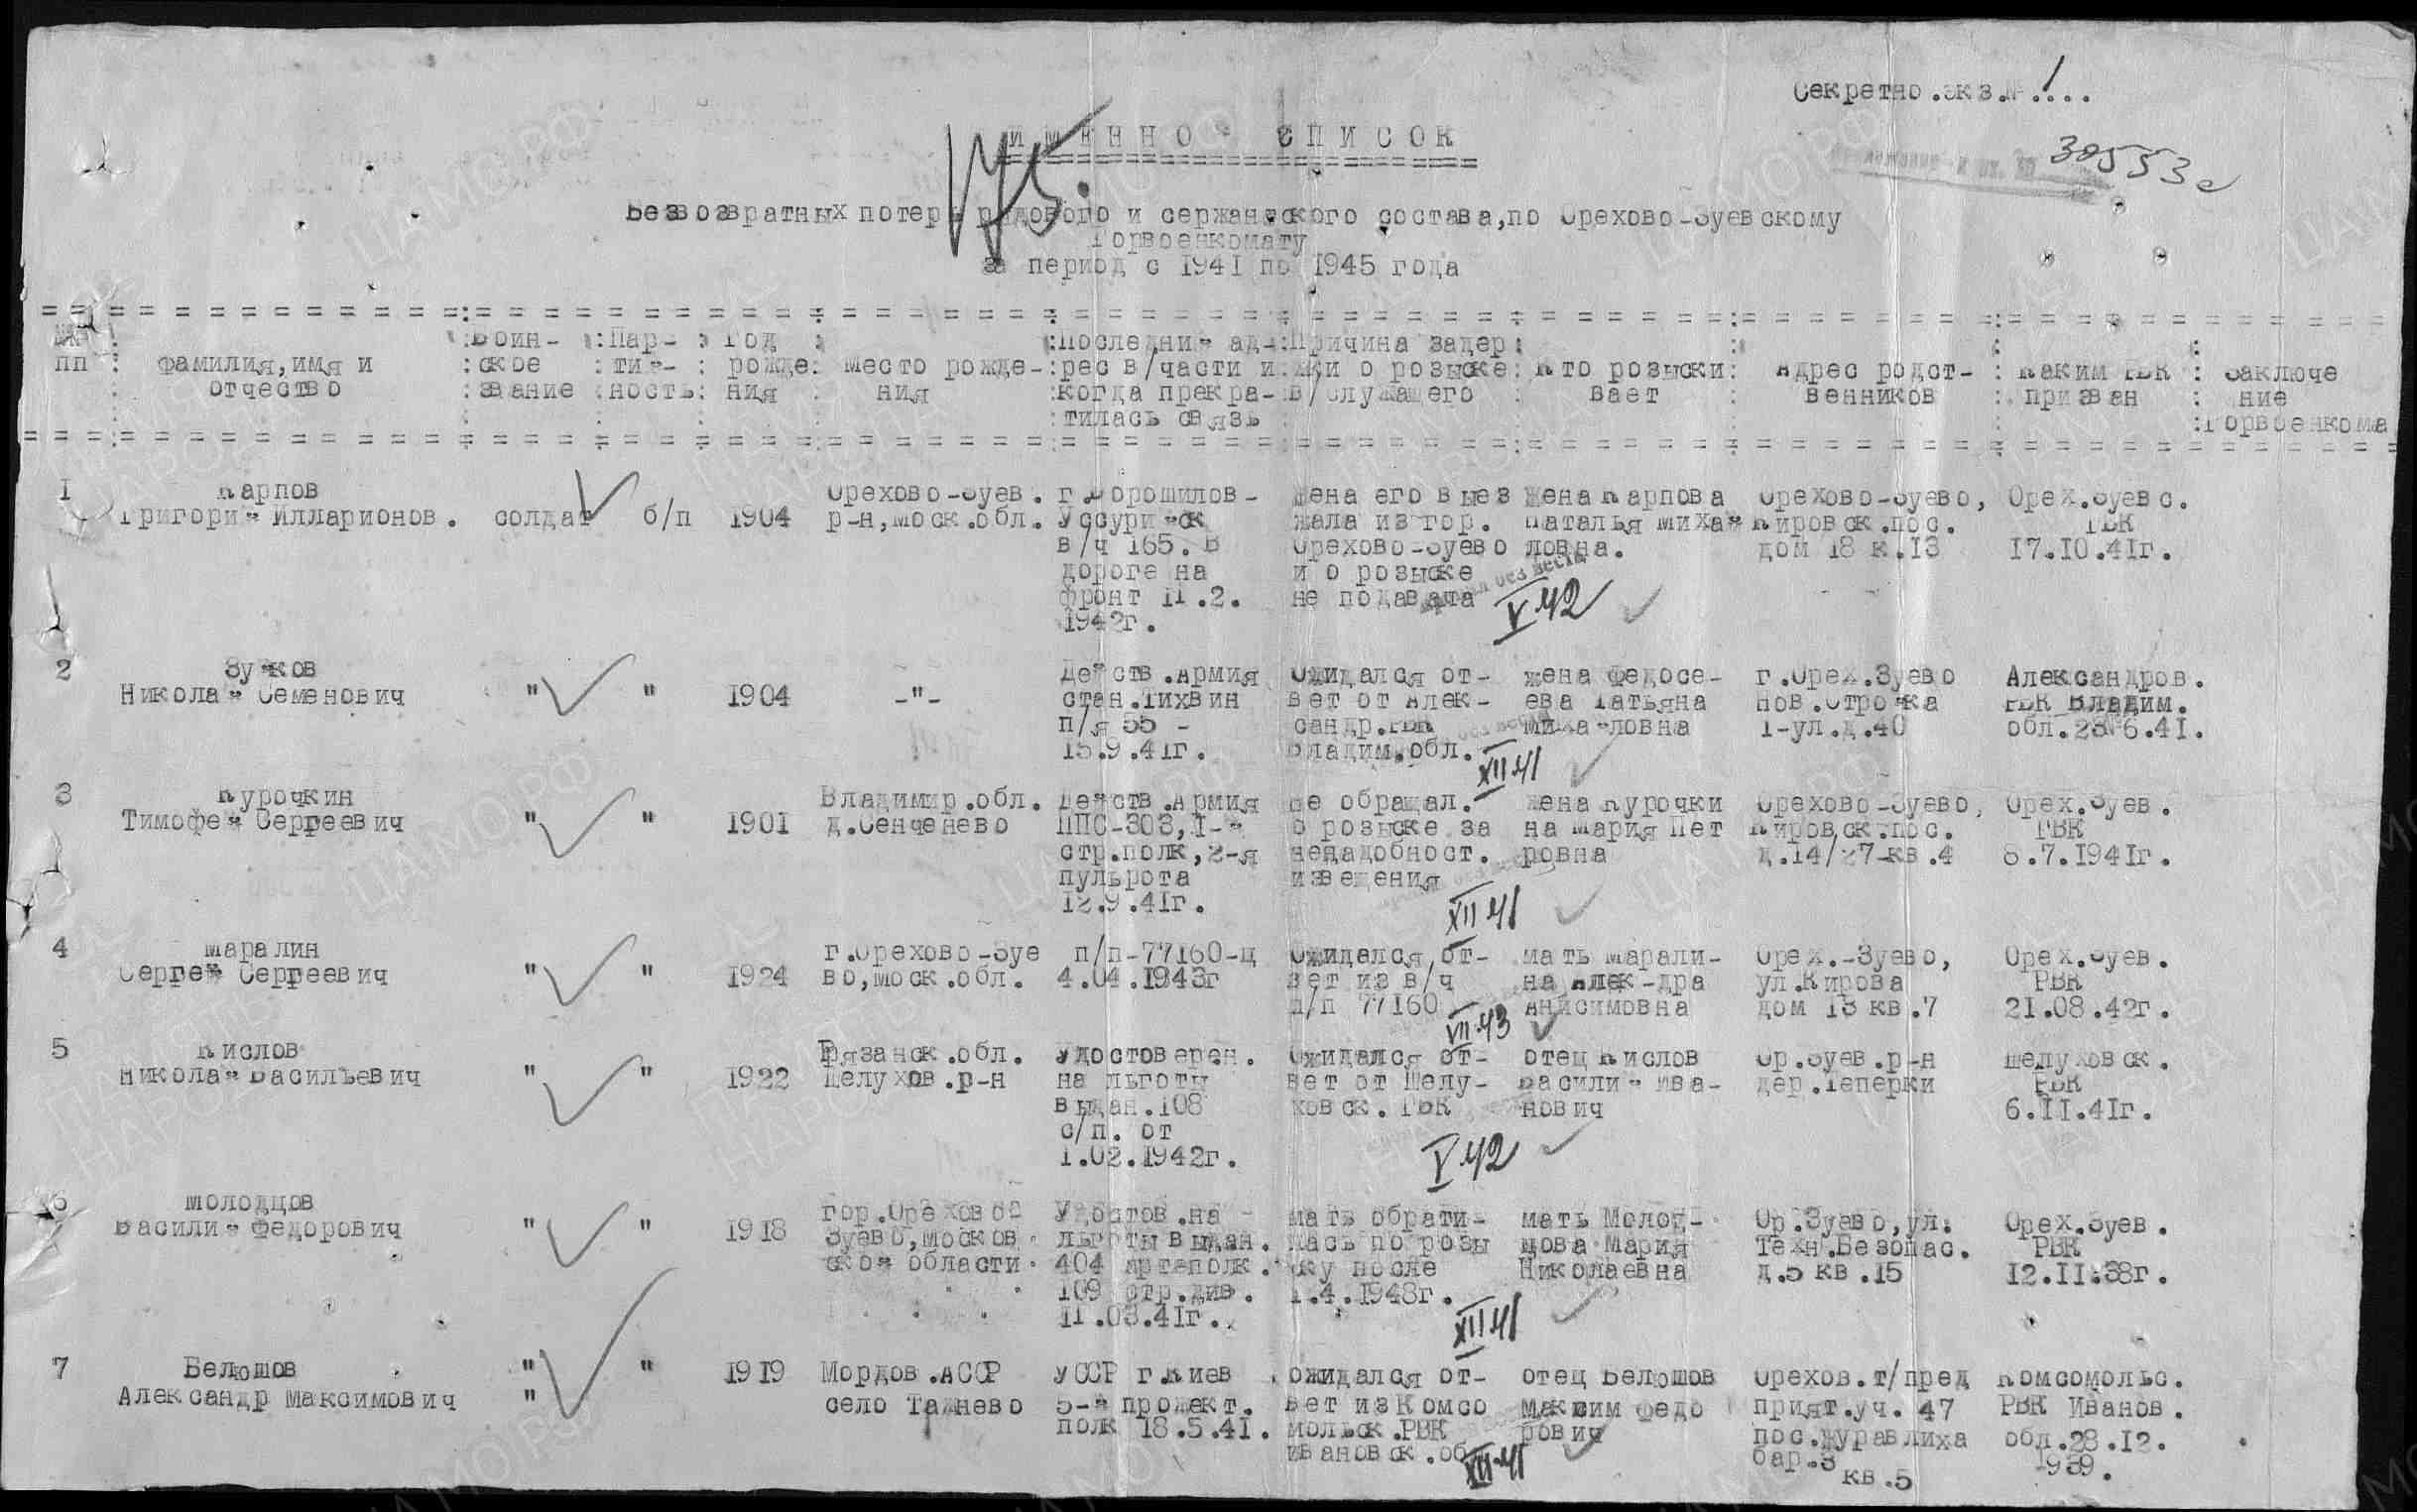 Секретно.экз.№.1...
ИМЕННОЙ СПИСОК
175.
30553с
Безвозвратных потерь рядового и сержантского состава,по Орехово-Зуевскому
Горвоенкомату
за период с 1941 по 1945 года
№№ пп : фамилия,имя и отчество : Воинское звание : Партийность : Год рождения : Место рождения : Последний адрес в/части и когда прекратилась связь : Причина задержки о розыске в/служащего : Кто розыскивает : Адрес родственников : Каким РВК призван : Заключение Горвоенкома
1 Карпов
Григорий Илларионов. солдат б/п 1904
Орехово-Зуев.
р-н,моск.обл.
г.Ворошилов-
Уссурийск
в/ч 165. В
дороге на
фронт 11.2.
1942г.
Жена его выез
жала из гор.
Орехово-Зуево
и о розыске
не подавала
Жена Карпова
Наталья Михай
ловна.
без вести
V 42
Орехово-Зуево,
Кировск.пос.
дом 18 к.13
Орех.Зуевс.
ГВК
17.10.41г.
2 Зуйков
Николай Семенович " " 1904 -"-
Действ.Армия
стан.Тихвин
п/я 55 -
15.9.41г.
Ожидался от-
вет от Алек-
сандр.РВК
Владим.обл.
жена Федосе-
ева Татьяна
Михайловна
XII 41
г.Орех.Зуево
нов.Стройка
1-ул.д.40
Александров.
РВК Владим.
обл.23.6.41.
3 Курочкин
Тимофей Сергеевич " " 1901
Владимир.обл.
д.Сенченево
Действ.Армия
ППС-303,1-й
стр.полк,2-я
пульрота
12.9.41г.
не обращал.
о розыске за
ненадобност.
извещения
жена Курочки
на Мария Пет
ровна
XII 41
Орехово-Зуево,
Кировск.пос.
д.14/27-кв.4
Орех.Зуев.
ГВК
8.7.1941г.
4 Маралин
Сергей Сергеевич " " 1924
г.Орехово-Зуе
во,моск.обл.
п/п-77160-ц
4.04.1943г
Ожидался от-
вет из в/ч
п/п 77160
мать Марали-
на Алек-дра
Анисимовна
VII.43
Орех.-Зуево,
ул.Кирова
дом 13 кв.7
Орех.Зуев.
РВК
21.08.42г.
5 Кислов
Николай Васильевич " " 1922
Рязанск.обл.
Шелухов.р-н
Удостоверен.
на льготы
выдан.108
с/п. от
1.02.1942г.
Ожидался от-
вет от Шелу-
ховск. РВК
отец Кислов
Василий Ива-
нович
V 42
Ор.Зуев.р-н
дер.Теперки
Шелуховск.
РВК
6.11.41г.
6 Молодцов
Василий Федорович " " 1918
гор.Орехово-
Зуево,москов
ской области
Удостов.на
льготы выдан.
404 артполк.
109 стр.див.
11.03.41г.
мать обрати-
лась по розы
ску после
1.4.1948г.
мать Молод-
цова Мария
Николаевна
XII 41
Ор.Зуево,ул.
Техн.Безопас.
д.5 кв.15
Орех.Зуев.
РВК
12.11.38г.
7 Белюшов
Александр Максимович " " " 1919
Мордов.АССР
село Тажнево
УССР г.Киев
5-й прожект.
полк 18.5.41.
ожидался от-
вет из Комсо
мольск.РВК
ивановск.об
отец Белюшов
Максим Федо
рович
XII-41
Орехов.т/пред
прият.уч. 47
пос.Журавлиха
бар.3
кв.5
Комсомольс.
РВК Иванов.
обл.28.12.
1939.